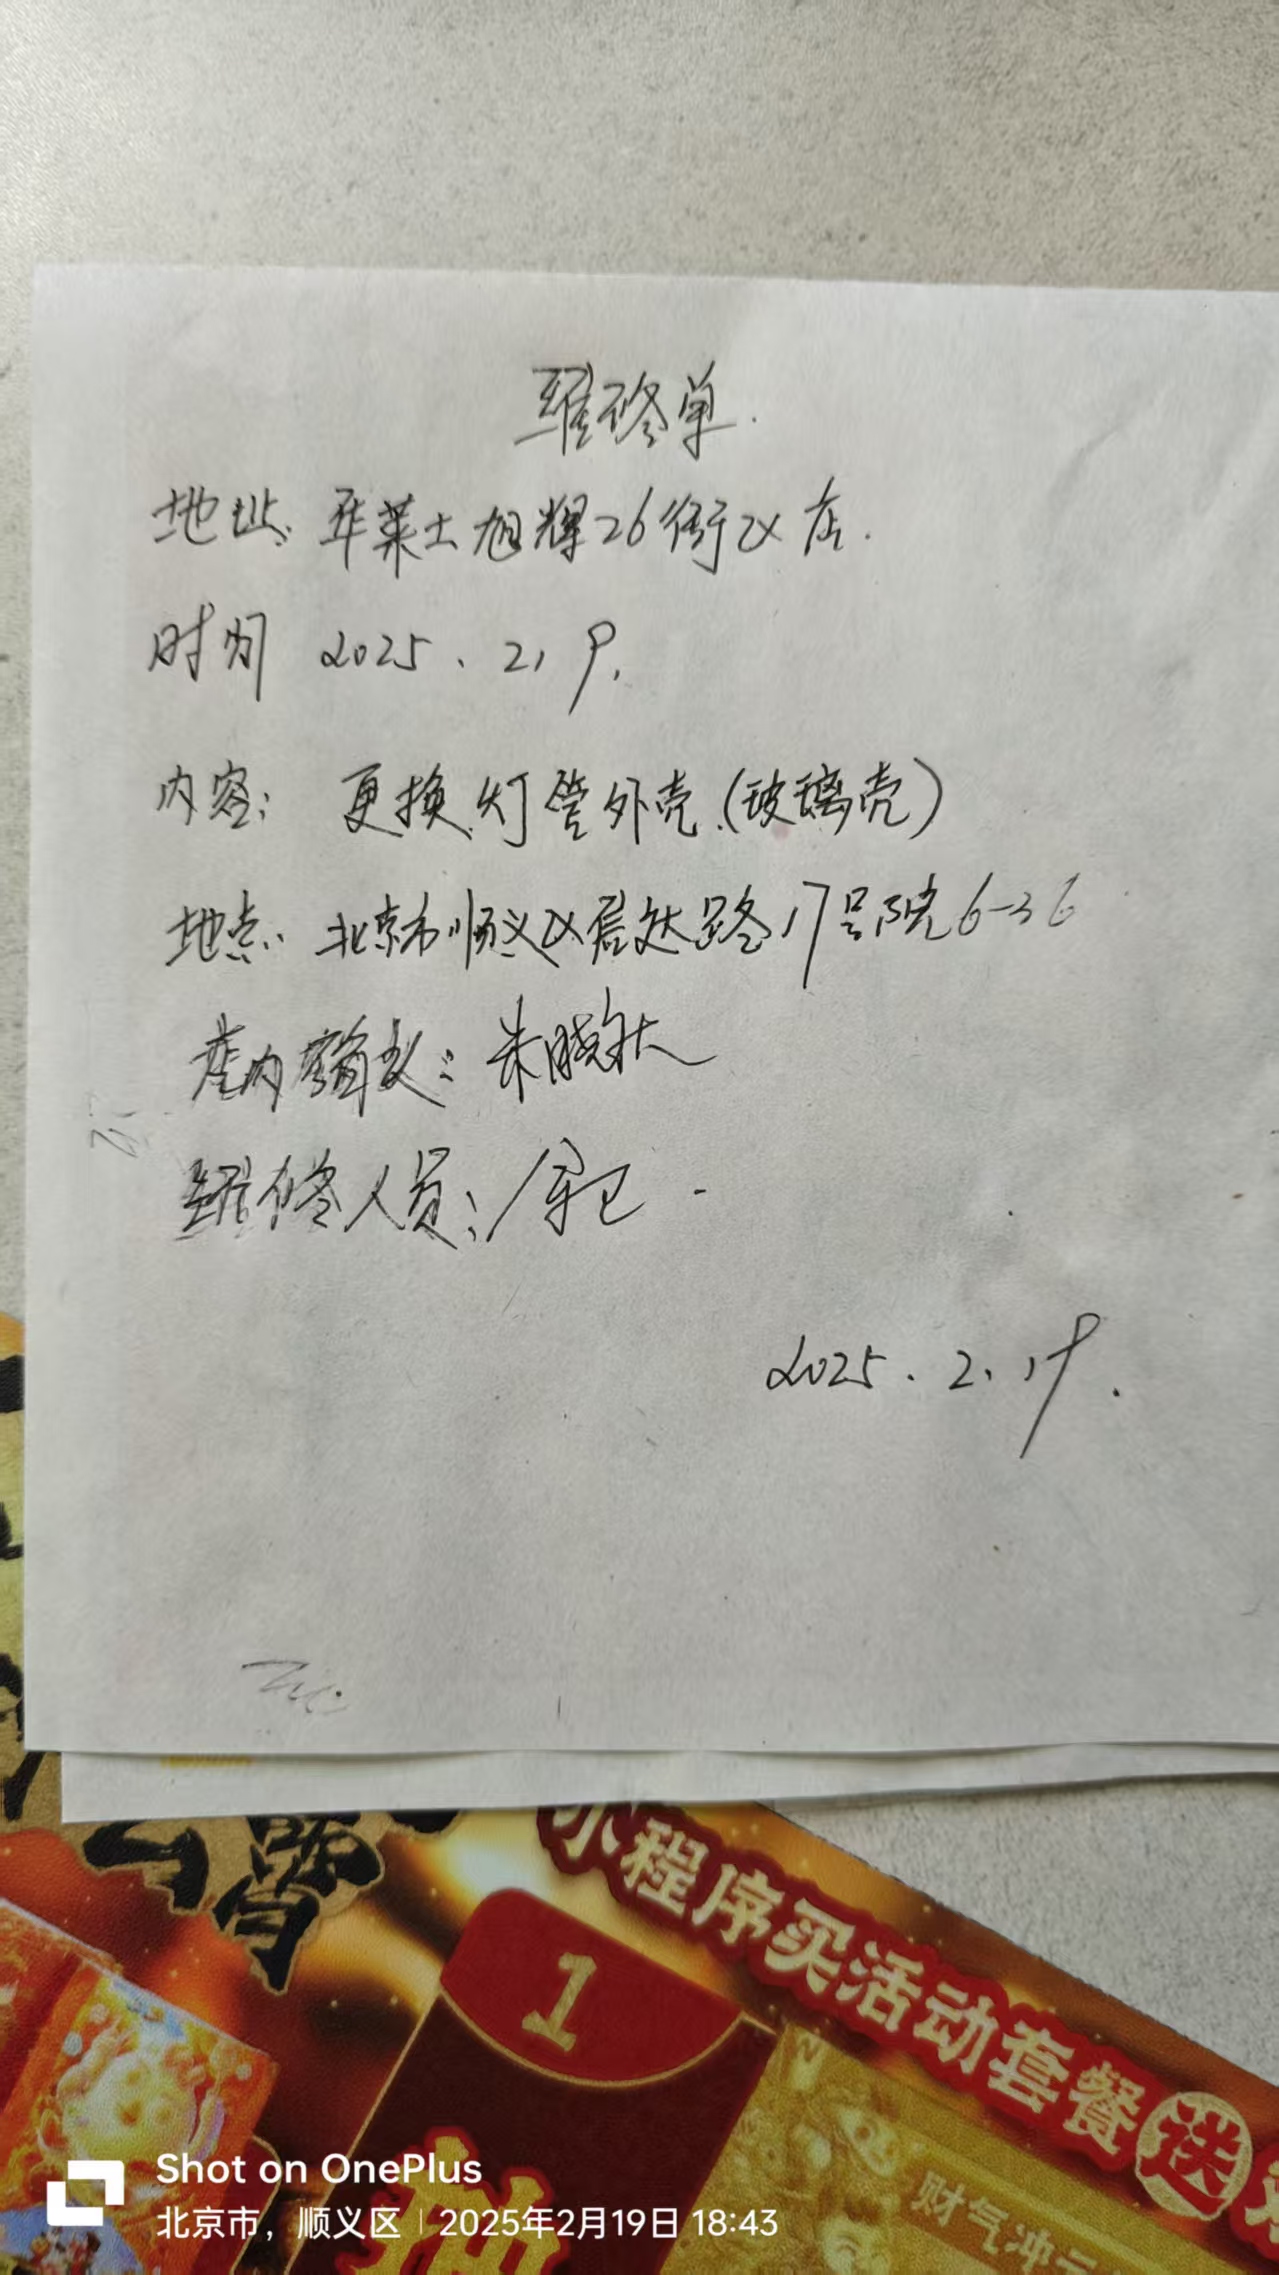 维修单.
地址: 华莱士旭辉26街区店.
时间 2025.2.19.
内容: 更换灯管外壳.(玻璃壳)
地点: 北京市顺义区信达路17号院6-36
店内确认: 朱晓秋
维修人员: 军卫.
2025.2.19.
宵
小程序买活动套餐送
1
抽
财气冲
Shot on OnePlus
北京市，顺义区 | 2025年2月19日 18:43